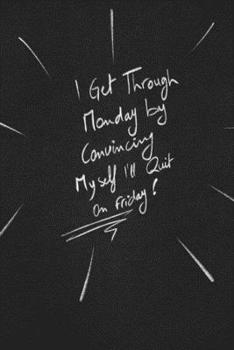 I Get Through
Monday by
Convincing
Myself I'll Quit
On Friday!